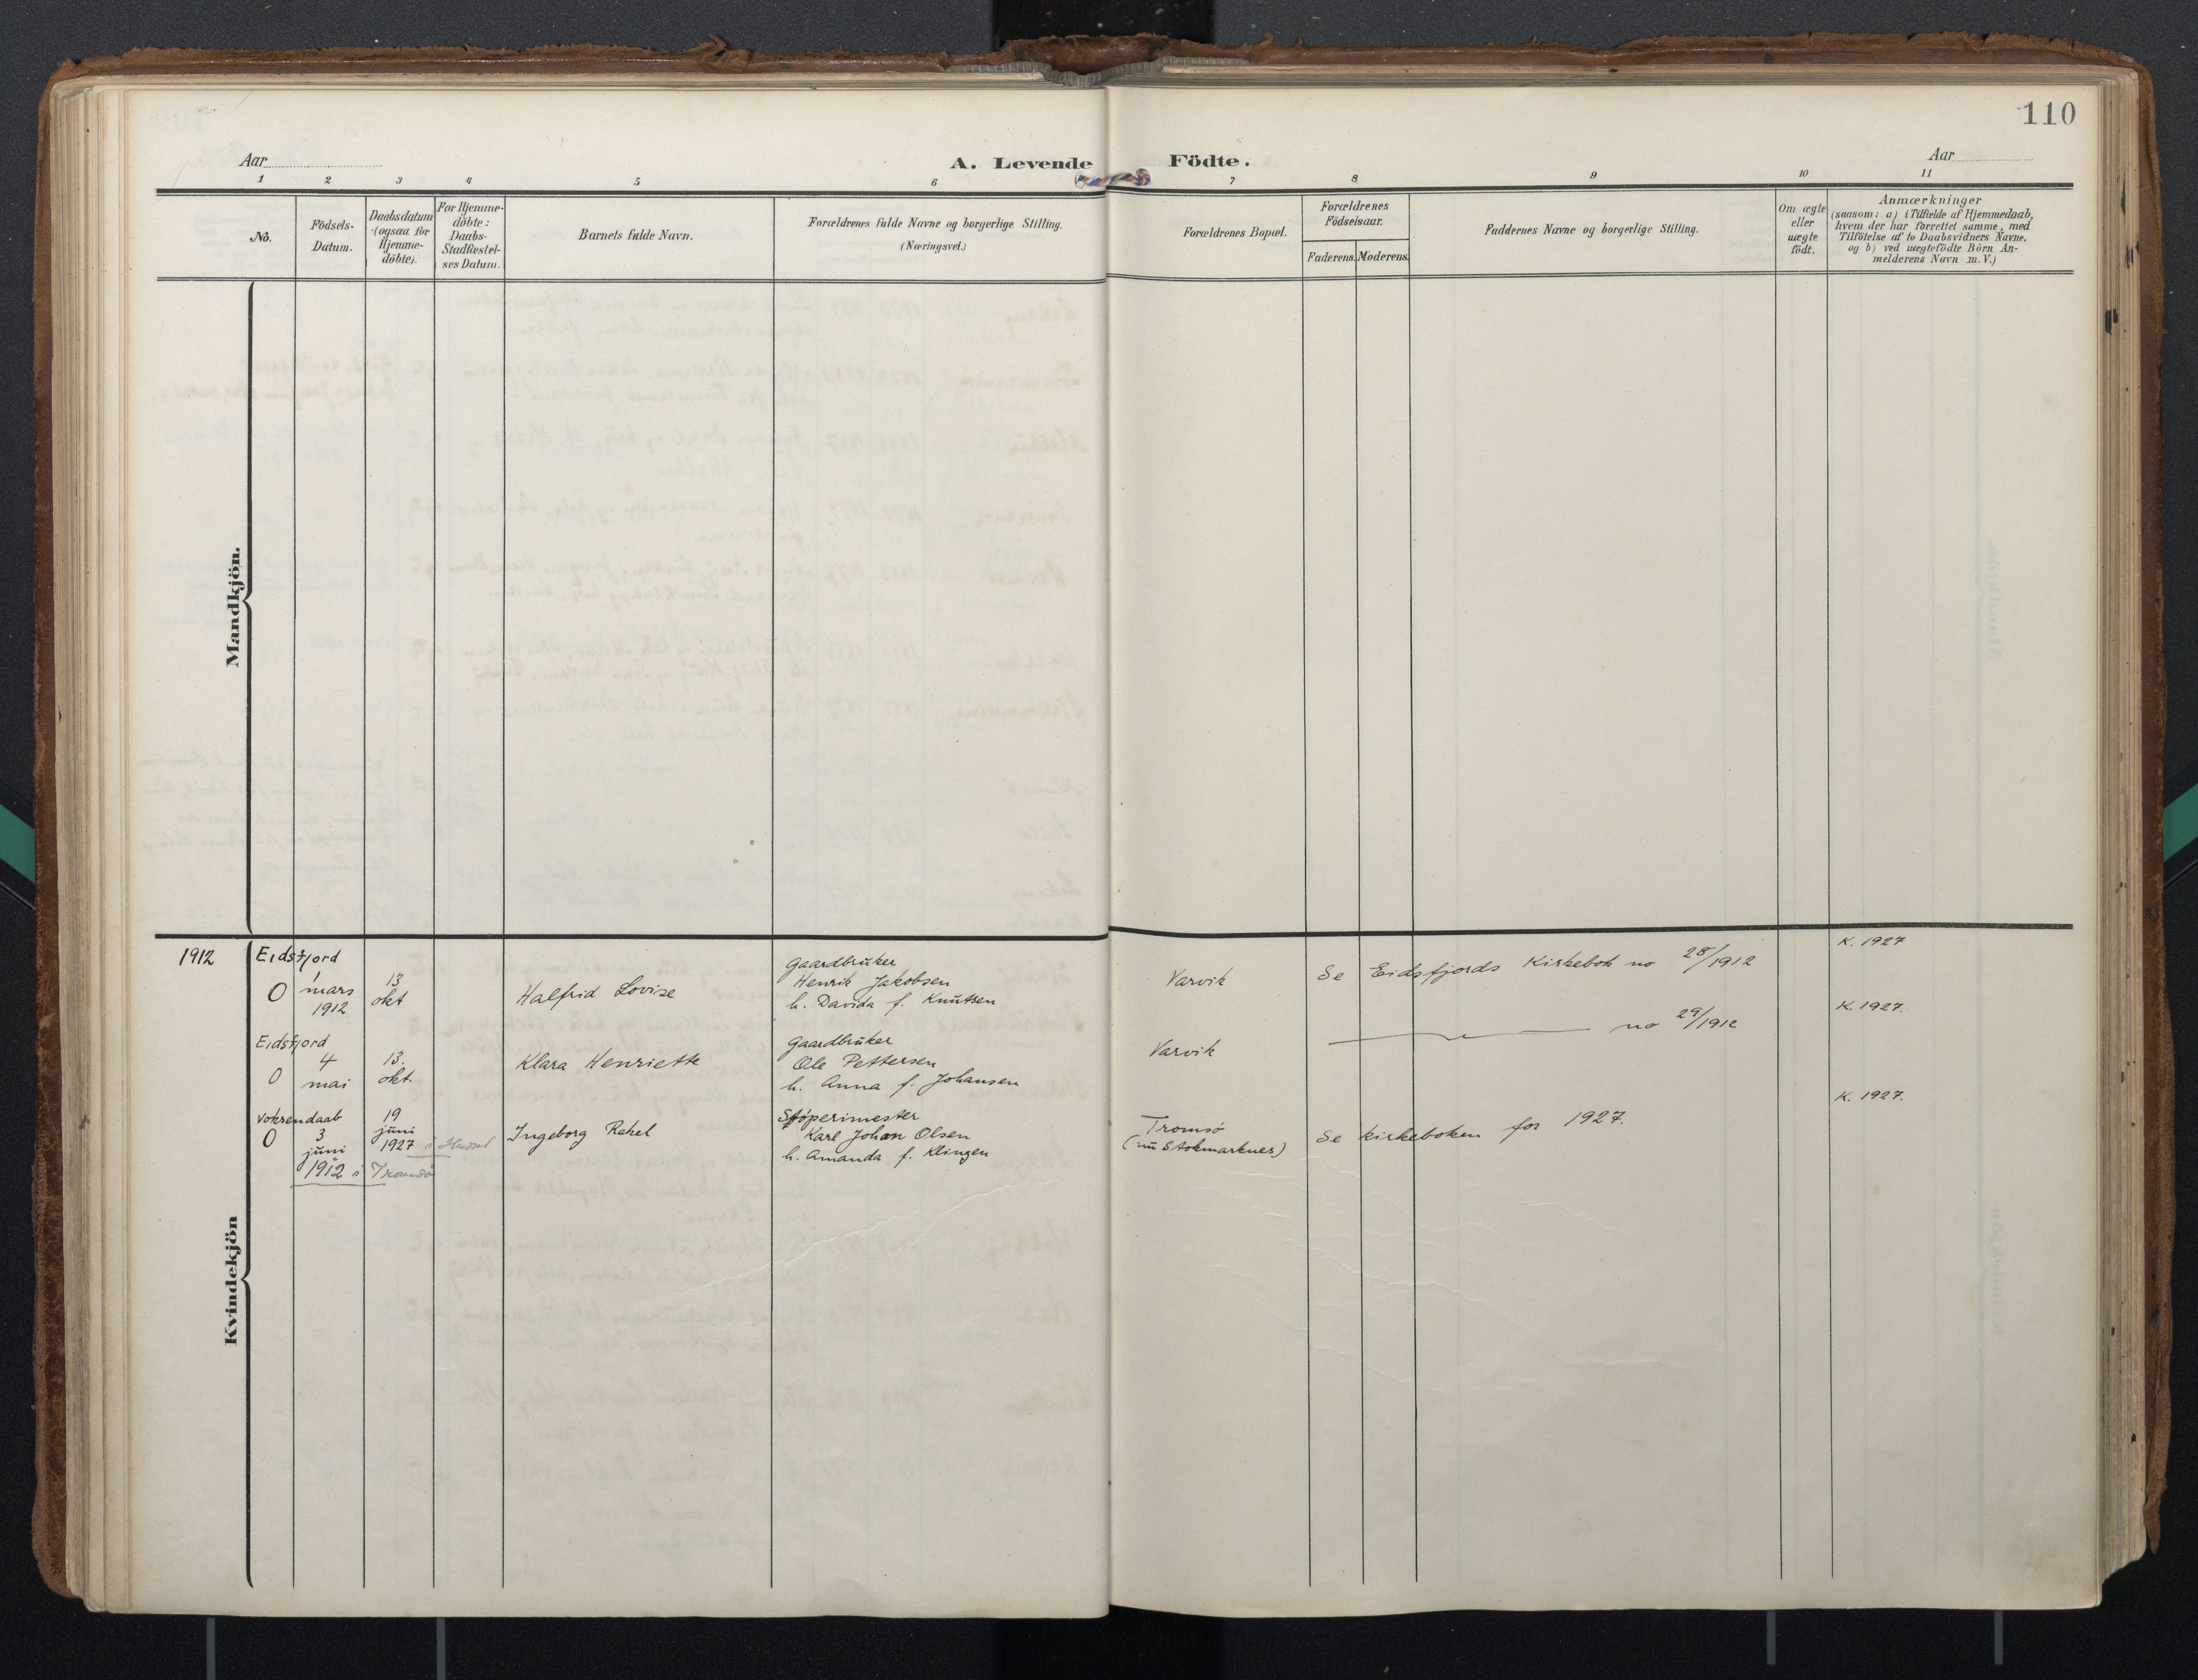 110
Aar
A. Levende Födte.
Aar
1 2 3 4 5 6 7 8 9 10 11
No.
Födsels-
Datum.
Daabsdatum
(ogsaa for
Hjemme-
döbte).
For Hjemme-
döbte:
Daabs-
Stadfæstel-
ses Datum.
Barnets fulde Navn.
Forældrenes fulde Navne og borgerlige Stilling.
(Næringsvei.)
Forældrenes Bopæl.
Forældrenes
Födselsaar.
Faderens. Moderens.
Faddernes Navne og borgerlige Stilling.
Om ægte
eller
uægte
födt.
Anmærkninger
(saasom: a) i Tilfælde af Hjemmedaab,
hvem der har forrettet samme, med
Tilföielse af to Daabsvidners Navne,
og b) ved uægtefödte Börn An-
melderens Navn m. V.)
Mandkjön.
Kvindekjön
1912
Eidsfjord
0
1
mars
1912
13
okt
Halfrid Lovise
Gaardbruker
Henrik Jakobsen
h. Davida f. Knutsen
Varvik
Se Eidsfjords Kirkebok no 28/1912
K. 1927
Eidsfjord
0
4
mai
13.
okt.
Klara Henriette
Gaardbruker
Ole Pettersen
h. Anna f. Johansen
Varvik
no 29/1912
K. 1927.
Voksendaab
0
3
juni
1912 i Tromsø
19
juni
1927 i
Ingeborg Rakel
Støperimester
Karl Johan Olsen
h. Amanda f. Klingen
Tromsø
(nu Stokmarknes)
Se kirkeboken for 1927.
K. 1927.